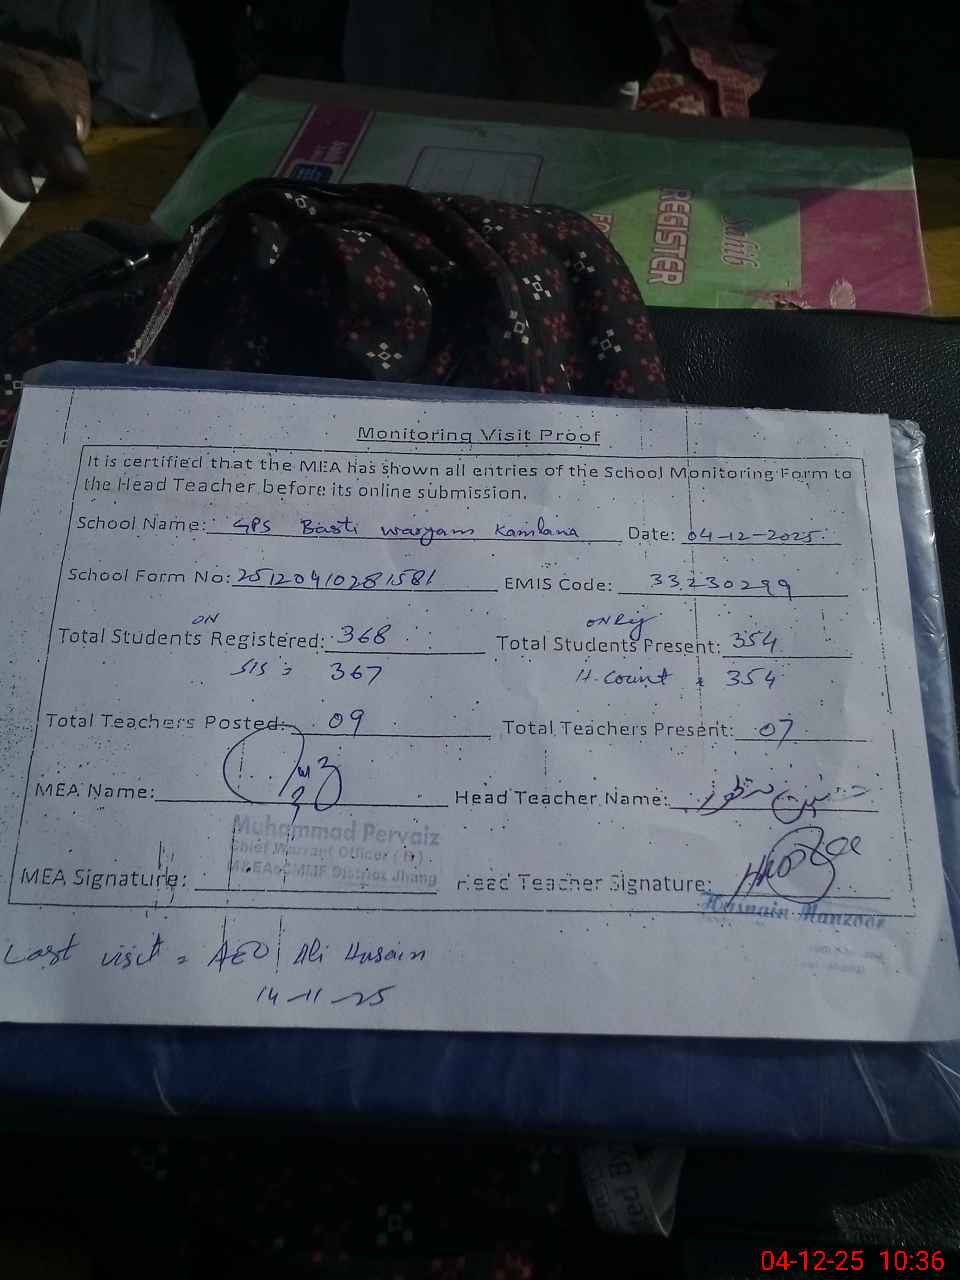 REGISTER
Monitoring Visit Proof
It is certified that the MEA has shown all entries of the School Monitoring Form to
the Head Teacher before its online submission.
School Name: GPS Basti Waryam Kamlana Date: 04-12-2025
School Form No: 25120410281581 EMIS Code: 33230299
ON ON Reg
Total Students Registered: 368 Total Students Present: 354
SIS = 367 H. Count = 354
Total Teachers Posted: 09 Total Teachers Present: 07
MEA Name: Head Teacher Name: حسنین منظور
Muhammad Pervaiz
Chief Warrant Officer (R)
MEA District Jhang
MEA Signature: Head Teacher Signature:
Hasnain Manzoor
Last visit = AEO Ali Husain
14-11-25
04-12-25 10:36